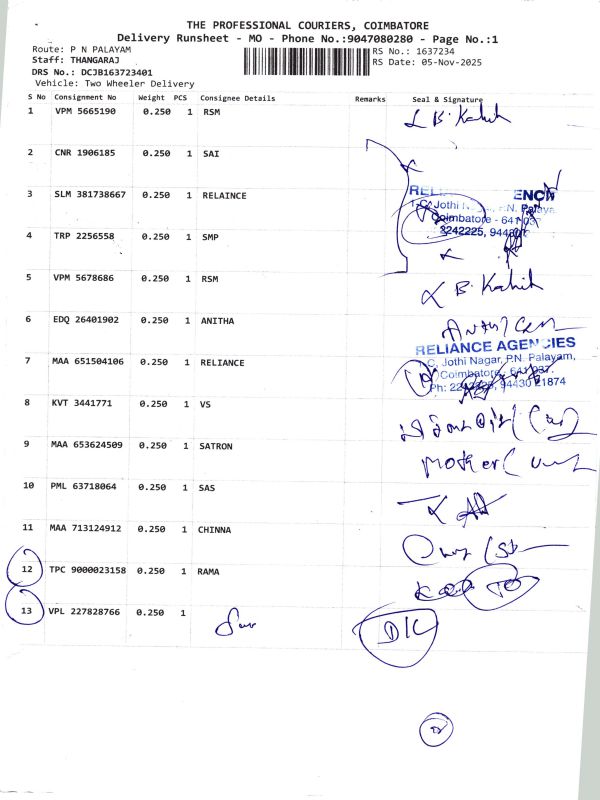 THE PROFESSIONAL COURIERS, COIMBATORE
Delivery Runsheet - MO - Phone No.:9047080280 - Page No.:1
Route: P N PALAYAM
RS No.: 1637234
Staff: THANGARAJ
RS Date: 05-Nov-2025
DRS No.: DCJB163723401
Vehicle: Two Wheeler Delivery
S No Consignment No Weight PCS Consignee Details Remarks Seal & Signature
1 VPM 5665190 0.250 1 RSM
2 CNR 1906185 0.250 1 SAI
3 SLM 381738667 0.250 1 RELAINCE
Jothi P.N. Palaya
Coimbatore - 641 037
4 TRP 2256558 0.250 1 SMP
3242225, 9443
5 VPM 5678686 0.250 1 RSM
6 EDQ 26401902 0.250 1 ANITHA
RELIANCE AGENCIES
7 MAA 651504106 0.250 1 RELIANCE
C, Jothi Nagar, P.N. Palayam,
Coimbatore - 641 037.
Ph: 94430 21874
8 KVT 3441771 0.250 1 VS
9 MAA 653624509 0.250 1 SATRON
Mother
10 PML 63718064 0.250 1 SAS
11 MAA 713124912 0.250 1 CHINNA
12 TPC 9000023158 0.250 1 RAMA
13 VPL 227828766 0.250 1
D/C